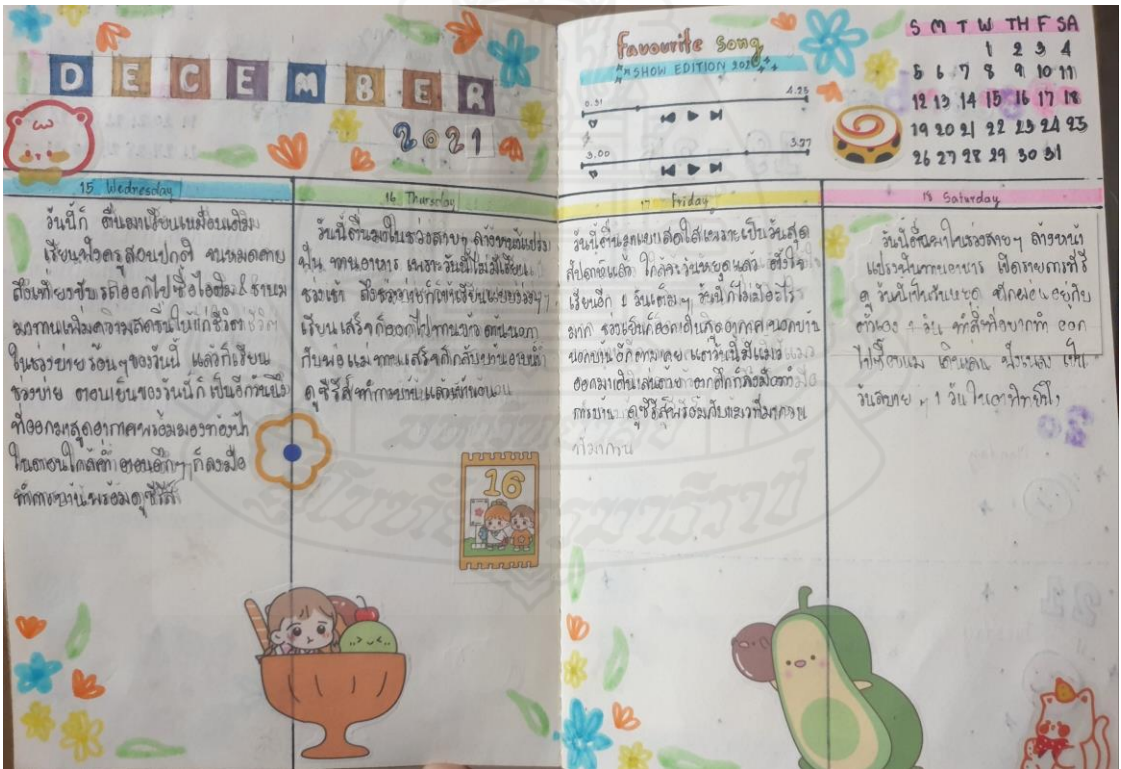 DECEMBER
2021
Favourite Song
SHOW EDITION 202
0.31 4.25
3.00 3.27
S M T W TH F SA
1 2 3 4
5 6 7 8 9 10 11
12 13 14 15 16 17 18
19 20 21 22 23 24 25
26 27 28 29 30 31
15 Wednesday
วันนี้ก็ ตื่นมาเรียนเหมือนเดิม
เรียนฟังครูสอนปกติ จนหมดคาบ
ถึงเที่ยงขับรถออกไปซื้อไอติม & ชานม
มาทานเพิ่มความสดชื่นให้แก่ชีวิต
ในช่วงบ่ายร้อนๆของวันนี้ แล้วก็เรียน
ช่วงบ่าย ตอนเย็นของวันนี้ก็เป็นอีกวันนึง
ที่ออกมาสูดอากาศพร้อมมองท้องฟ้า
ในตอนใกล้ค่ำ ตอนดึกๆ ก็ลงมือ
ทำการบ้านพร้อมดูซีรีส์
16 Thursday
วันนี้ตื่นมาในช่วงสายๆ ล้างหน้าแปรง
ฟัน ทานอาหาร เพราะวันนี้ไม่มีเรียน
ช่วงเช้า ถึงช่วงบ่ายก็เข้าเรียน
เรียนเสร็จก็ออกไปทานข้าวด้านนอก
กับพ่อแม่ ทานเสร็จก็กลับบ้านอาบน้ำ
ดูซีรีส์ทำการบ้านแล้วเข้านอน
16
17 Friday
วันนี้ตื่นมาแบบสดใสเพราะเป็นวันสุด
สัปดาห์แล้ว ใกล้จะวันหยุดแล้ว
เรียนอีก 1 วันเต็มๆ วันนี้ก็ไม่มีอะไร
มาก ช่วงเย็นก็ออกมาสูดอากาศนอกบ้าน
แต่วันนี้มีแมว
ออกมาเดินเล่นด้วย ตกดึกก็ลงมือทำ
การบ้าน ดูซีรีส์พร้อมกับแมวที่มากวน
18 Saturday
วันนี้ตื่นมาในช่วงสายๆ ล้างหน้า
แปรงฟันทานอาหาร เปิดรายการทีวี
ดู วันนี้เป็นวันหยุด พักผ่อนอยู่กับ
ตัวเอง 1 วัน ทำสิ่งที่อยากทำ ออก
ไปซื้อขนม เดินเล่น ฟังเพลง เป็น
วันสบายๆ 1 วัน